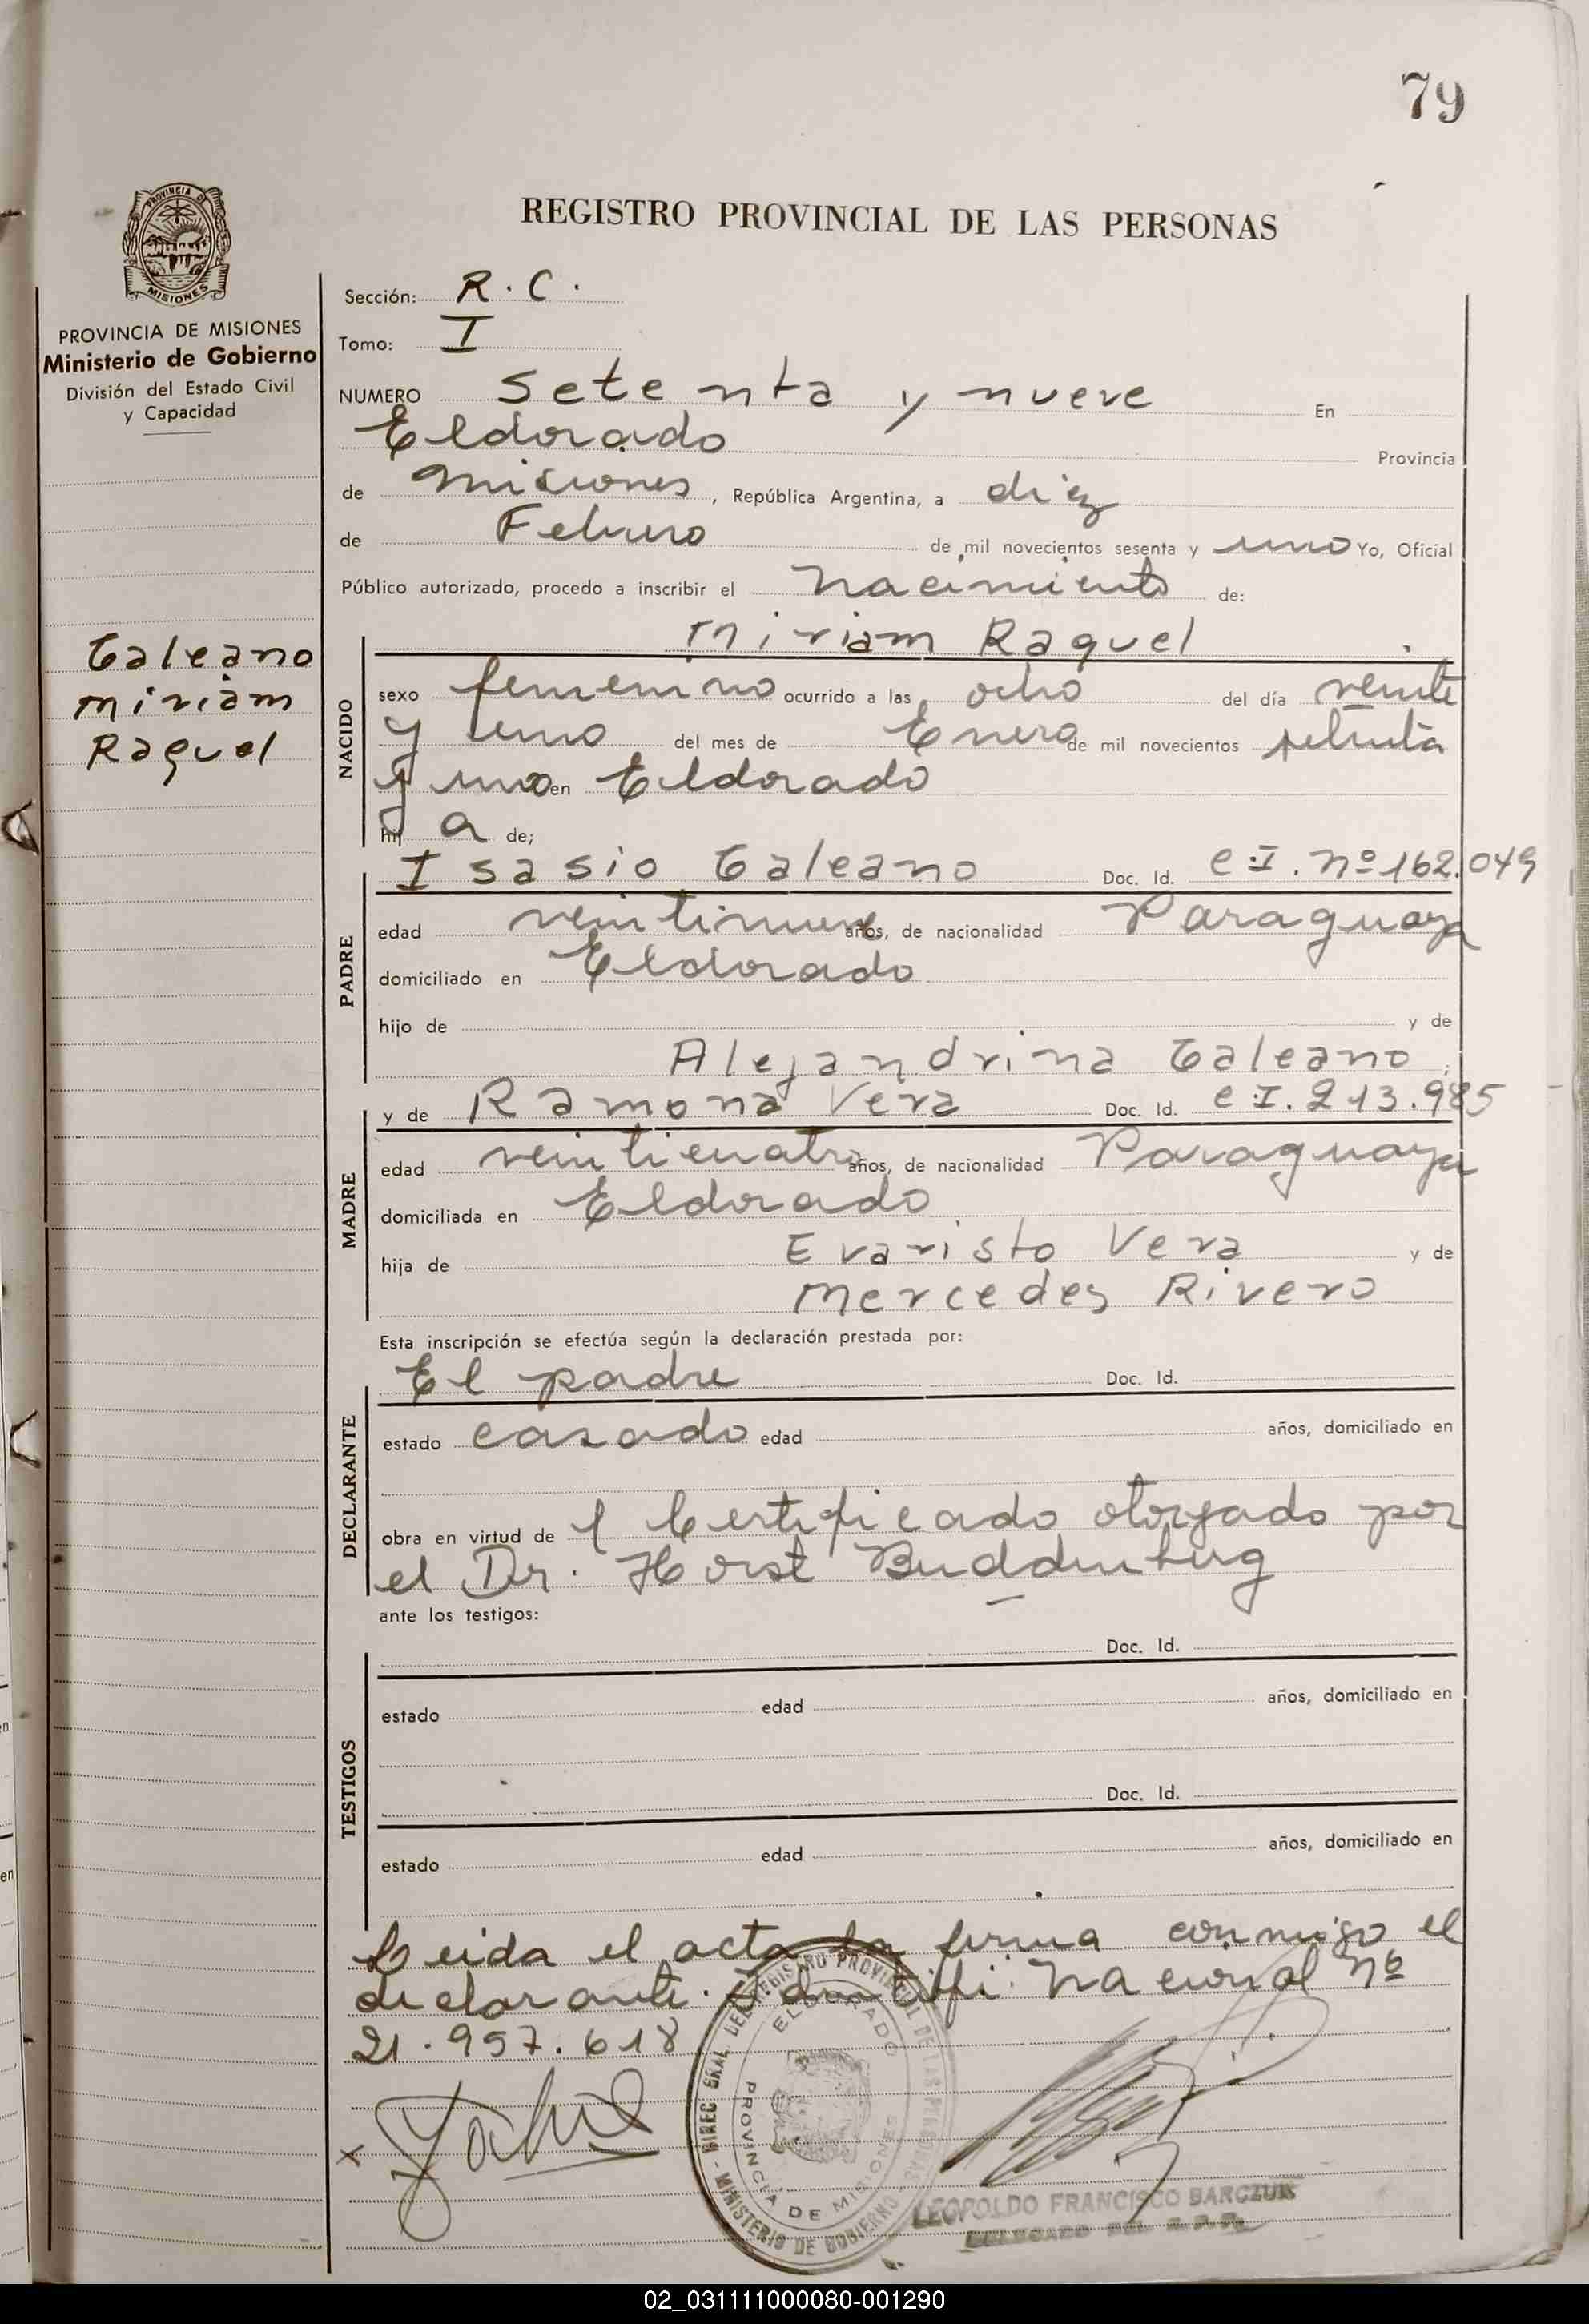 79
REGISTRO PROVINCIAL DE LAS PERSONAS
PROVINCIA DE
MISIONES
PROVINCIA DE MISIONES
Ministerio de Gobierno
División del Estado Civil
y Capacidad
Galeano
Miriam
Raquel
Sección: R. C.
Tomo: I
NUMERO Setenta y nueve En
Eldorado Provincia
de Misiones, República Argentina, a diez
de Febrero de mil novecientos sesenta y uno Yo, Oficial
Público autorizado, procedo a inscribir el Nacimiento de:
Miriam Raquel
NACIDO
sexo femenino ocurrido a las ocho del día veinte
y uno del mes de Enero de mil novecientos setenta
y uno en Eldorado
hij a de;
Isasio Galeano Doc. Id. C.I. Nº 162.049
PADRE
edad veintinueve años, de nacionalidad Paraguaya
domiciliado en Eldorado
hijo de y de
Alejandrina Galeano
y de Ramona Vera Doc. Id. C.I. 213.985
MADRE
edad veinticuatro años, de nacionalidad Paraguaya
domiciliada en Eldorado
hija de Evaristo Vera y de
Mercedes Rivero
Esta inscripción se efectúa según la declaración prestada por:
El padre Doc. Id.
DECLARANTE
estado casado edad años, domiciliado en
obra en virtud de l Certificado otorgado por
el Dr. Horst Buddenberg
ante los testigos:
Doc. Id.
TESTIGOS
estado edad años, domiciliado en
Doc. Id.
estado edad años, domiciliado en
Leida el acta la firma conmigo el
declarante. Identifi. Nacional Nº
21.957.618
DIREC. GRAL. DEL REGISTRO PROVINCIAL DE LAS PERSONAS
ELDORADO
PROVINCIA DE MISIONES
MINISTERIO DE GOBIERNO
X
LEOPOLDO FRANCISCO BARCZUK
DELEGADO DEL R.P.P.
02_031111000080-001290